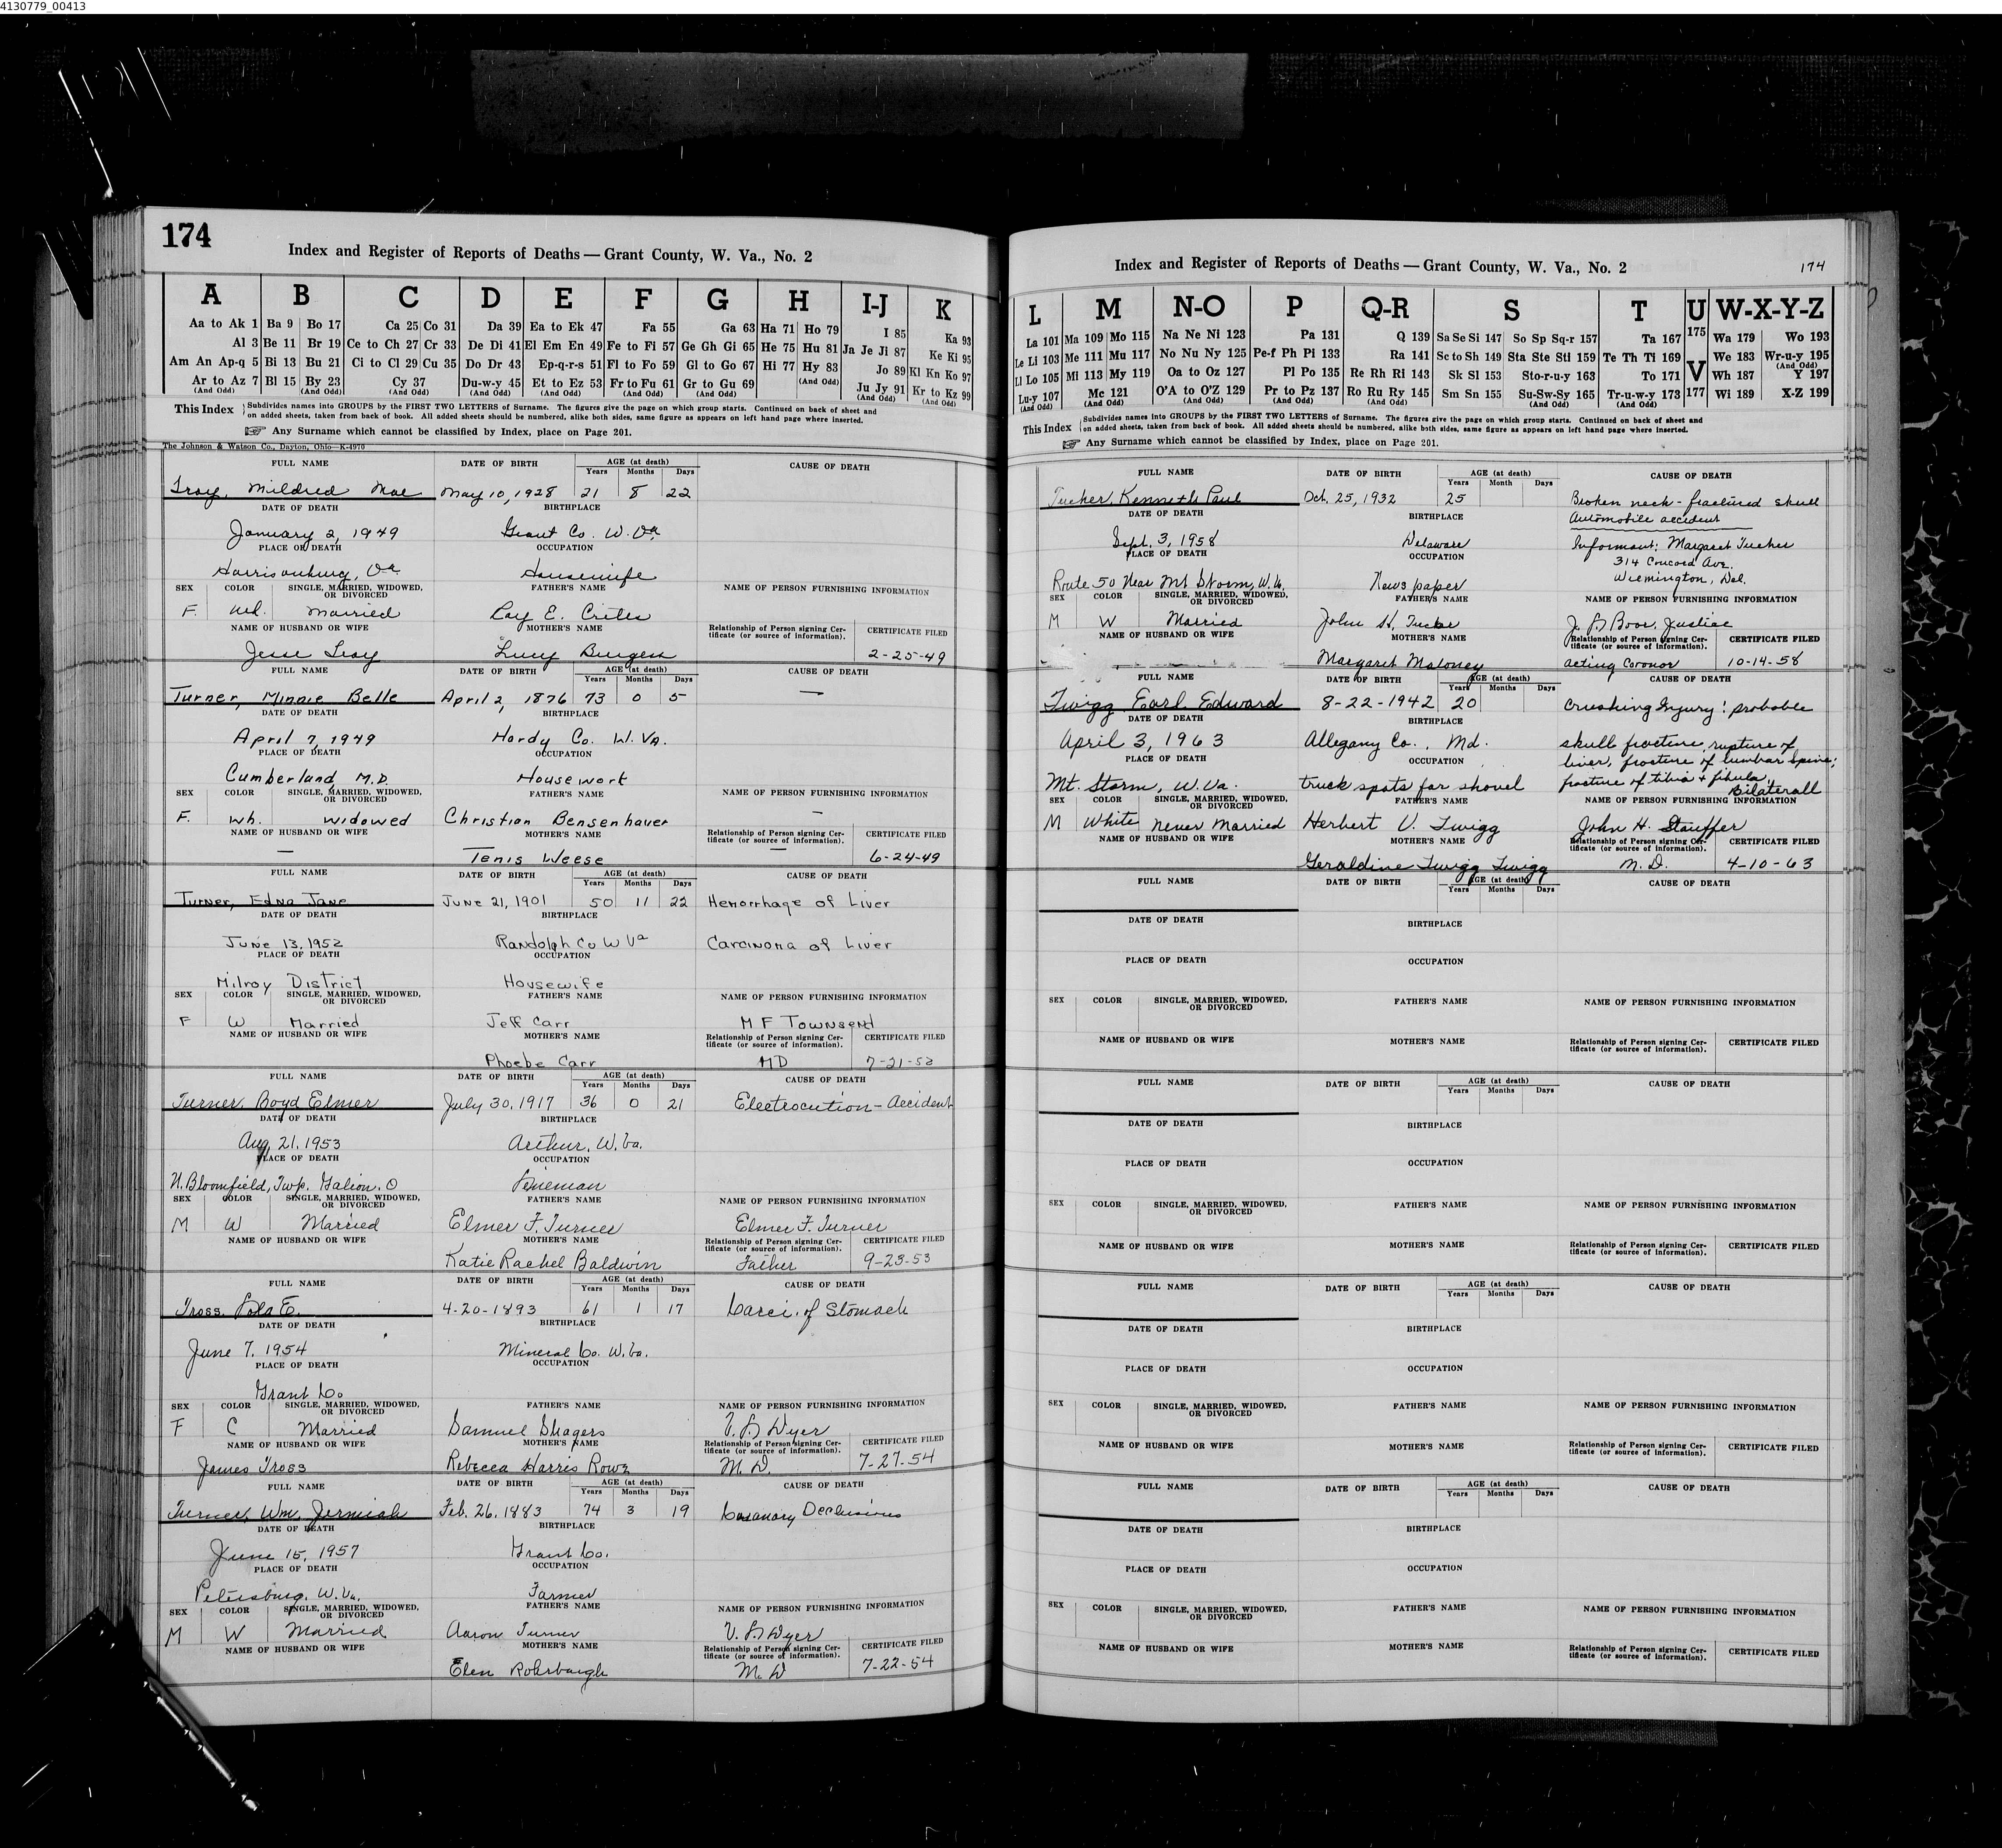 4130779_00413
174
Index and Register of Reports of Deaths — Grant County, W. Va., No. 2
A B C D E F G H I-J K
Aa to Ak 1 Ba 9 Bo 17 Ca 25 Co 31 Da 39 Ea to Ek 47 Fa 55 Ga 63 Ha 71 Ho 79 I 85 Ka 93
Al 3 Be 11 Br 19 Ce to Ch 27 Cr 33 De Di 41 El Em En 49 Fe to Fi 57 Ge Gh Gi 65 He 75 Hu 81 Ja Je Ji 87 Ke Ki 95
Am An Ap-q 5 Bi 13 Bu 21 Ci to Cl 29 Cu 35 Do Dr 43 Ep-q-r-s 51 Fl to Fo 59 Gl to Go 67 Hi 77 Hy 83 Jo 89 Kl Kn Ko 97
Ar to Az 7 Bl 15 By 23 Cy 37 Du-w-y 45 Et to Ez 53 Fr to Fu 61 Gr to Gu 69 (And Odd) Ju Jy 91 Kr to Kz 99
(And Odd) (And Odd) (And Odd) (And Odd) (And Odd) (And Odd) (And Odd) (And Odd) (And Odd)
This Index Subdivides names into GROUPS by the FIRST TWO LETTERS of Surname. The figures give the page on which group starts. Continued on back of sheet and
on added sheets, taken from back of book. All added sheets should be numbered, alike both sides, same figure as appears on left hand page where inserted.
☞ Any Surname which cannot be classified by Index, place on Page 201.
The Johnson & Watson Co., Dayton, Ohio—K-4970
FULL NAME DATE OF BIRTH AGE (at death) CAUSE OF DEATH
Years Months Days
Troy, Mildred Mae May 10, 1928 21 8 22
DATE OF DEATH BIRTHPLACE
January 2, 1949 Grant Co. W. Va.
PLACE OF DEATH OCCUPATION
Harrisonburg, Va. Housewife
SEX COLOR SINGLE, MARRIED, WIDOWED, OR DIVORCED FATHER'S NAME NAME OF PERSON FURNISHING INFORMATION
F. Wh. Married Ray E. Crites
NAME OF HUSBAND OR WIFE MOTHER'S NAME Relationship of Person signing Certificate (or source of information). CERTIFICATE FILED
Jesse Troy Lucy Burgess 2-25-49
FULL NAME DATE OF BIRTH AGE (at death) CAUSE OF DEATH
Years Months Days
Turner, Minnie Belle April 2, 1876 73 0 5 —
DATE OF DEATH BIRTHPLACE
April 7, 1949 Hardy Co. W. VA.
PLACE OF DEATH OCCUPATION
Cumberland, M.D. Housework
SEX COLOR SINGLE, MARRIED, WIDOWED, OR DIVORCED FATHER'S NAME NAME OF PERSON FURNISHING INFORMATION
F. Wh. Widowed Christian Bensenhaver —
NAME OF HUSBAND OR WIFE MOTHER'S NAME Relationship of Person signing Certificate (or source of information). CERTIFICATE FILED
— Tenis Weese — 6-24-49
FULL NAME DATE OF BIRTH AGE (at death) CAUSE OF DEATH
Years Months Days
Turner, Edna Jane June 21, 1901 50 11 22 Hemorrhage of Liver
DATE OF DEATH BIRTHPLACE
June 13, 1952 Randolph Co W Va Carcinoma of Liver
PLACE OF DEATH OCCUPATION
Milroy District Housewife
SEX COLOR SINGLE, MARRIED, WIDOWED, OR DIVORCED FATHER'S NAME NAME OF PERSON FURNISHING INFORMATION
F W Married Jeff Carr M F Townsend
NAME OF HUSBAND OR WIFE MOTHER'S NAME Relationship of Person signing Certificate (or source of information). CERTIFICATE FILED
Phoebe Carr MD 7-21-52
FULL NAME DATE OF BIRTH AGE (at death) CAUSE OF DEATH
Years Months Days
Turner, Boyd Elmer July 30, 1917 36 0 21 Electrocution - Accident
DATE OF DEATH BIRTHPLACE
Aug. 21, 1953 Arthur, W. Va.
PLACE OF DEATH OCCUPATION
N. Bloomfield, Twp. Galion, O
SEX COLOR SINGLE, MARRIED, WIDOWED, OR DIVORCED FATHER'S NAME NAME OF PERSON FURNISHING INFORMATION
M W Married Elmer F. Turner Elmer F. Turner
NAME OF HUSBAND OR WIFE MOTHER'S NAME Relationship of Person signing Certificate (or source of information). CERTIFICATE FILED
Katie Rachel Baldwin Father 9-23-53
FULL NAME DATE OF BIRTH AGE (at death) CAUSE OF DEATH
Years Months Days
Tross, E. 4-20-1893 61 1 17 Carci. of Stomach
DATE OF DEATH BIRTHPLACE
June 7, 1954 Mineral Co. W. Va.
PLACE OF DEATH OCCUPATION
Grant Co
SEX COLOR SINGLE, MARRIED, WIDOWED, OR DIVORCED FATHER'S NAME NAME OF PERSON FURNISHING INFORMATION
F C Married Samuel Shagers V. L. Dyer
NAME OF HUSBAND OR WIFE MOTHER'S NAME Relationship of Person signing Certificate (or source of information). CERTIFICATE FILED
James Tross Rebecca Harris Rowz M. D. 7-27-54
FULL NAME DATE OF BIRTH AGE (at death) CAUSE OF DEATH
Years Months Days
Turner, Wm. Jermiah Feb. 26, 1883 74 3 19
DATE OF DEATH BIRTHPLACE
June 15, 1957 Grant Co.
PLACE OF DEATH OCCUPATION
Petersburg, W. Va. Farmer
SEX COLOR SINGLE, MARRIED, WIDOWED, OR DIVORCED FATHER'S NAME NAME OF PERSON FURNISHING INFORMATION
M W Married Aaron Turner V. L. Dyer
NAME OF HUSBAND OR WIFE MOTHER'S NAME Relationship of Person signing Certificate (or source of information). CERTIFICATE FILED
Elen Rohrbaugh M. D 7-22-54
Index and Register of Reports of Deaths — Grant County, W. Va., No. 2 174
L M N-O P Q-R S T U W-X-Y-Z
La 101 Ma 109 Mo 115 Na Ne Ni 123 Pa 131 Q 139 Sa Se Si 147 So Sp Sq-r 157 Ta 167 175 Wa 179 Wo 193
Le Li 103 Me 111 Mu 117 No Nu Ny 125 Pe-f Ph Pi 133 Ra 141 Sc to Sh 149 Sta Ste Sti 159 Te Th Ti 169 We 183 Wr-u-y 195
Ll Lo 105 Mi 113 My 119 Oa to Oz 127 Pl Po 135 Re Rh Ri 143 Sk Sl 153 Sto-r-u-y 163 To 171 V Wh 187 (And Odd) Y 197
Lu-y 107 Mc 121 O'A to O'Z 129 Pr to Pz 137 Ro Ru Ry 145 Sm Sn 155 Su-Sw-Sy 165 Tr-u-w-y 173 177 Wi 189 X-Z 199
(And Odd) (And Odd) (And Odd) (And Odd) (And Odd) (And Odd) (And Odd)
This Index Subdivides names into GROUPS by the FIRST TWO LETTERS of Surname. The figures give the page on which group starts. Continued on back of sheet and
on added sheets, taken from back of book. All added sheets should be numbered, alike both sides, same figure as appears on left hand page where inserted.
☞ Any Surname which cannot be classified by Index, place on Page 201.
FULL NAME DATE OF BIRTH AGE (at death) CAUSE OF DEATH
Years Month Days
Tucker, Kenneth Paul Oct. 25, 1932 25 Broken neck - fractured skull
DATE OF DEATH BIRTHPLACE Automobile accident
Sept. 3, 1958 Delaware Informant: Margaret Tucker
PLACE OF DEATH OCCUPATION 314 Concord Ave.
Route 50 Near Mt Storm, W. Va. Newspaper Wilmington, Del.
SEX COLOR SINGLE, MARRIED, WIDOWED, OR DIVORCED FATHER'S NAME NAME OF PERSON FURNISHING INFORMATION
M W Married John H. Tucker J. B Boor, Justice
NAME OF HUSBAND OR WIFE MOTHER'S NAME Relationship of Person signing Certificate (or source of information). CERTIFICATE FILED
Margaret Maloney acting Coronor 10-14-58
FULL NAME DATE OF BIRTH AGE (at death) CAUSE OF DEATH
Years Months Days
Twigg Earl Edward 8-22-1942 20 Crushing Injury: probable
DATE OF DEATH BIRTHPLACE
April 3, 1963 Allegany Co., Md. skull fracture, rupture of
PLACE OF DEATH OCCUPATION liver, fracture of lumbar spine;
Mt. Storm, W. Va. truck spots for shovel fracture of tibia & fibula, Bilaterall
SEX COLOR SINGLE, MARRIED, WIDOWED, OR DIVORCED FATHER'S NAME NAME OF PERSON FURNISHING INFORMATION
M White never Married Herbert V. Twigg John H. Stauffer
NAME OF HUSBAND OR WIFE MOTHER'S NAME Relationship of Person signing Certificate (or source of information). CERTIFICATE FILED
Geraldine Twigg Twigg M. D. 4-10-63
FULL NAME DATE OF BIRTH AGE (at death) CAUSE OF DEATH
Years Months Days
DATE OF DEATH BIRTHPLACE
PLACE OF DEATH OCCUPATION
SEX COLOR SINGLE, MARRIED, WIDOWED, OR DIVORCED FATHER'S NAME NAME OF PERSON FURNISHING INFORMATION
NAME OF HUSBAND OR WIFE MOTHER'S NAME Relationship of Person signing Certificate (or source of information). CERTIFICATE FILED
FULL NAME DATE OF BIRTH AGE (at death) CAUSE OF DEATH
Years Months Days
DATE OF DEATH BIRTHPLACE
PLACE OF DEATH OCCUPATION
SEX COLOR SINGLE, MARRIED, WIDOWED, OR DIVORCED FATHER'S NAME NAME OF PERSON FURNISHING INFORMATION
NAME OF HUSBAND OR WIFE MOTHER'S NAME Relationship of Person signing Certificate (or source of information). CERTIFICATE FILED
FULL NAME DATE OF BIRTH AGE (at death) CAUSE OF DEATH
Years Months Days
DATE OF DEATH BIRTHPLACE
PLACE OF DEATH OCCUPATION
SEX COLOR SINGLE, MARRIED, WIDOWED, OR DIVORCED FATHER'S NAME NAME OF PERSON FURNISHING INFORMATION
NAME OF HUSBAND OR WIFE MOTHER'S NAME Relationship of Person signing Certificate (or source of information). CERTIFICATE FILED
FULL NAME DATE OF BIRTH AGE (at death) CAUSE OF DEATH
Years Months Days
DATE OF DEATH BIRTHPLACE
PLACE OF DEATH OCCUPATION
SEX COLOR SINGLE, MARRIED, WIDOWED, OR DIVORCED FATHER'S NAME NAME OF PERSON FURNISHING INFORMATION
NAME OF HUSBAND OR WIFE MOTHER'S NAME Relationship of Person signing Certificate (or source of information). CERTIFICATE FILED